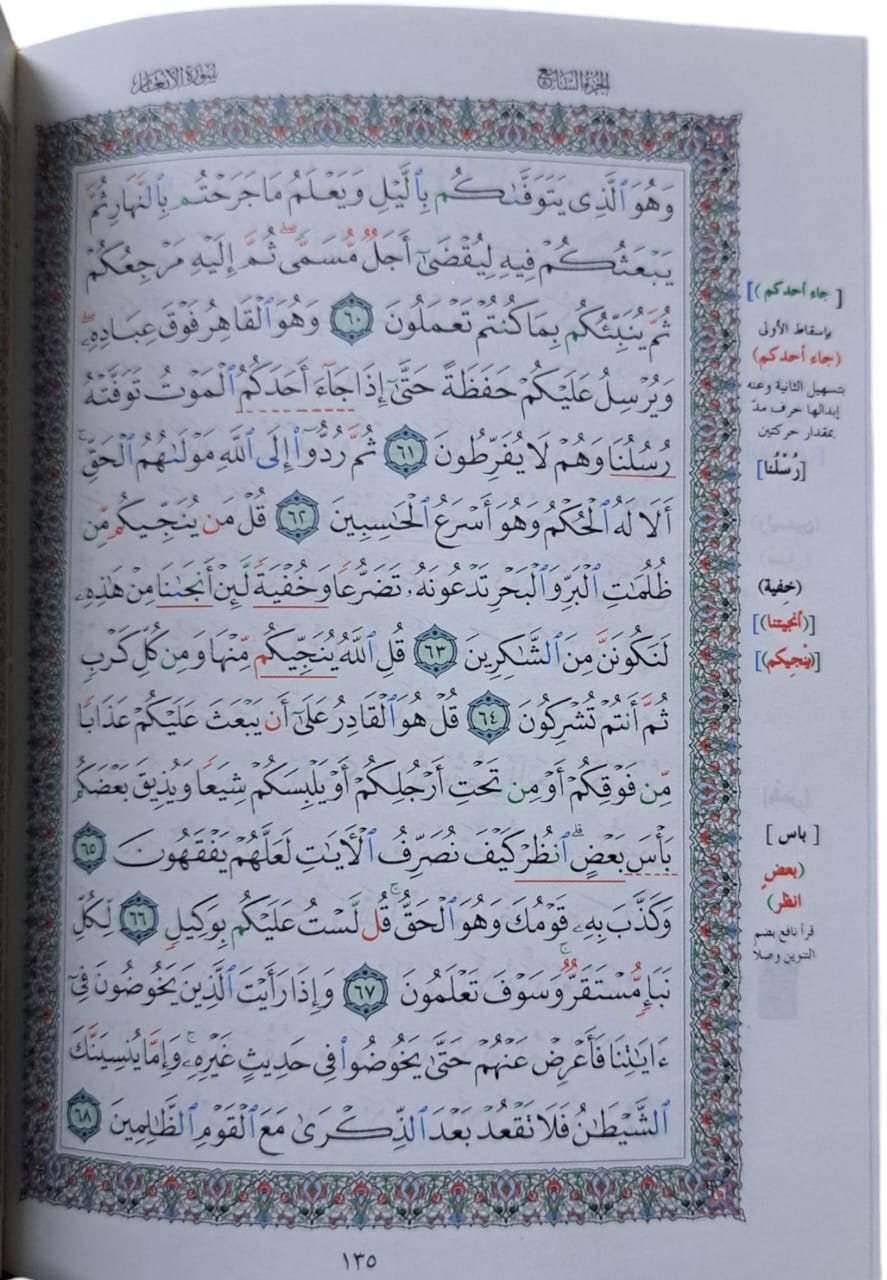 سورة الأنعام
الجزء السابع
وَهُوَ ٱلَّذِى يَتَوَفَّىٰكُم بِٱلَّيْلِ وَيَعْلَمُ مَا جَرَحْتُم بِٱلنَّهَارِ ثُمَّ
يَبْعَثُكُمْ فِيهِ لِيُقْضَىٰٓ أَجَلٌ مُّسَمًّى ۖ ثُمَّ إِلَيْهِ مَرْجِعُكُمْ
ثُمَّ يُنَبِّئُكُم بِمَا كُنتُمْ تَعْمَلُونَ ٦٠ وَهُوَ ٱلْقَاهِرُ فَوْقَ عِبَادِهِۦ ۖ
وَيُرْسِلُ عَلَيْكُمْ حَفَظَةً حَتَّىٰٓ إِذَا جَآءَ أَحَدَكُمُ ٱلْمَوْتُ تَوَفَّتْهُ
رُسُلُنَا وَهُمْ لَا يُفَرِّطُونَ ٦١ ثُمَّ رُدُّوٓا۟ إِلَى ٱللَّهِ مَوْلَىٰهُمُ ٱلْحَقِّ ۚ
أَلَا لَهُ ٱلْحُكْمُ وَهُوَ أَسْرَعُ ٱلْحَـٰسِبِينَ ٦٢ قُلْ مَن يُنَجِّيكُم مِّن
ظُلُمَـٰتِ ٱلْبَرِّ وَٱلْبَحْرِ تَدْعُونَهُۥ تَضَرُّعًا وَخُفْيَةً لَّئِنْ أَنجَىٰنَا مِنْ هَـٰذِهِۦ
لَنَكُونَنَّ مِنَ ٱلشَّـٰكِرِينَ ٦٣ قُلِ ٱللَّهُ يُنَجِّيكُم مِّنْهَا وَمِن كُلِّ كَرْبٍ
ثُمَّ أَنتُمْ تُشْرِكُونَ ٦٤ قُلْ هُوَ ٱلْقَادِرُ عَلَىٰٓ أَن يَبْعَثَ عَلَيْكُمْ عَذَابًا
مِّن فَوْقِكُمْ أَوْ مِن تَحْتِ أَرْجُلِكُمْ أَوْ يَلْبِسَكُمْ شِيَعًا وَيُذِيقَ بَعْضَكُم
بَأْسَ بَعْضٍ ۗ ٱنظُرْ كَيْفَ نُصَرِّفُ ٱلْـَٔايَـٰتِ لَعَلَّهُمْ يَفْقَهُونَ ٦٥
وَكَذَّبَ بِهِۦ قَوْمُكَ وَهُوَ ٱلْحَقُّ ۚ قُل لَّسْتُ عَلَيْكُم بِوَكِيلٍ ٦٦ لِّكُلِّ
نَبَإٍ مُّسْتَقَرٌّ ۚ وَسَوْفَ تَعْلَمُونَ ٦٧ وَإِذَا رَأَيْتَ ٱلَّذِينَ يَخُوضُونَ فِىٓ
ءَايَـٰتِنَا فَأَعْرِضْ عَنْهُمْ حَتَّىٰ يَخُوضُوا۟ فِى حَدِيثٍ غَيْرِهِۦ ۚ وَإِمَّا يُنسِيَنَّكَ
ٱلشَّيْطَـٰنُ فَلَا تَقْعُدْ بَعْدَ ٱلذِّكْرَىٰ مَعَ ٱلْقَوْمِ ٱلظَّـٰلِمِينَ ٦٨
[(جاء أحدكم)]
بإسقاط الأولى
(جاء أحدكم)
بتسهيل الثانية وعنه
إبدالها حرف مدّ
بمقدار حركتين
[رُسْلُنا]
(خِفية)
[(أنجيتنا)]
[(يُنْجِيكم)]
[باس]
(بعضٍ
انظر)
قرأ نافع بضم
التنوين وصلا
١٣٥